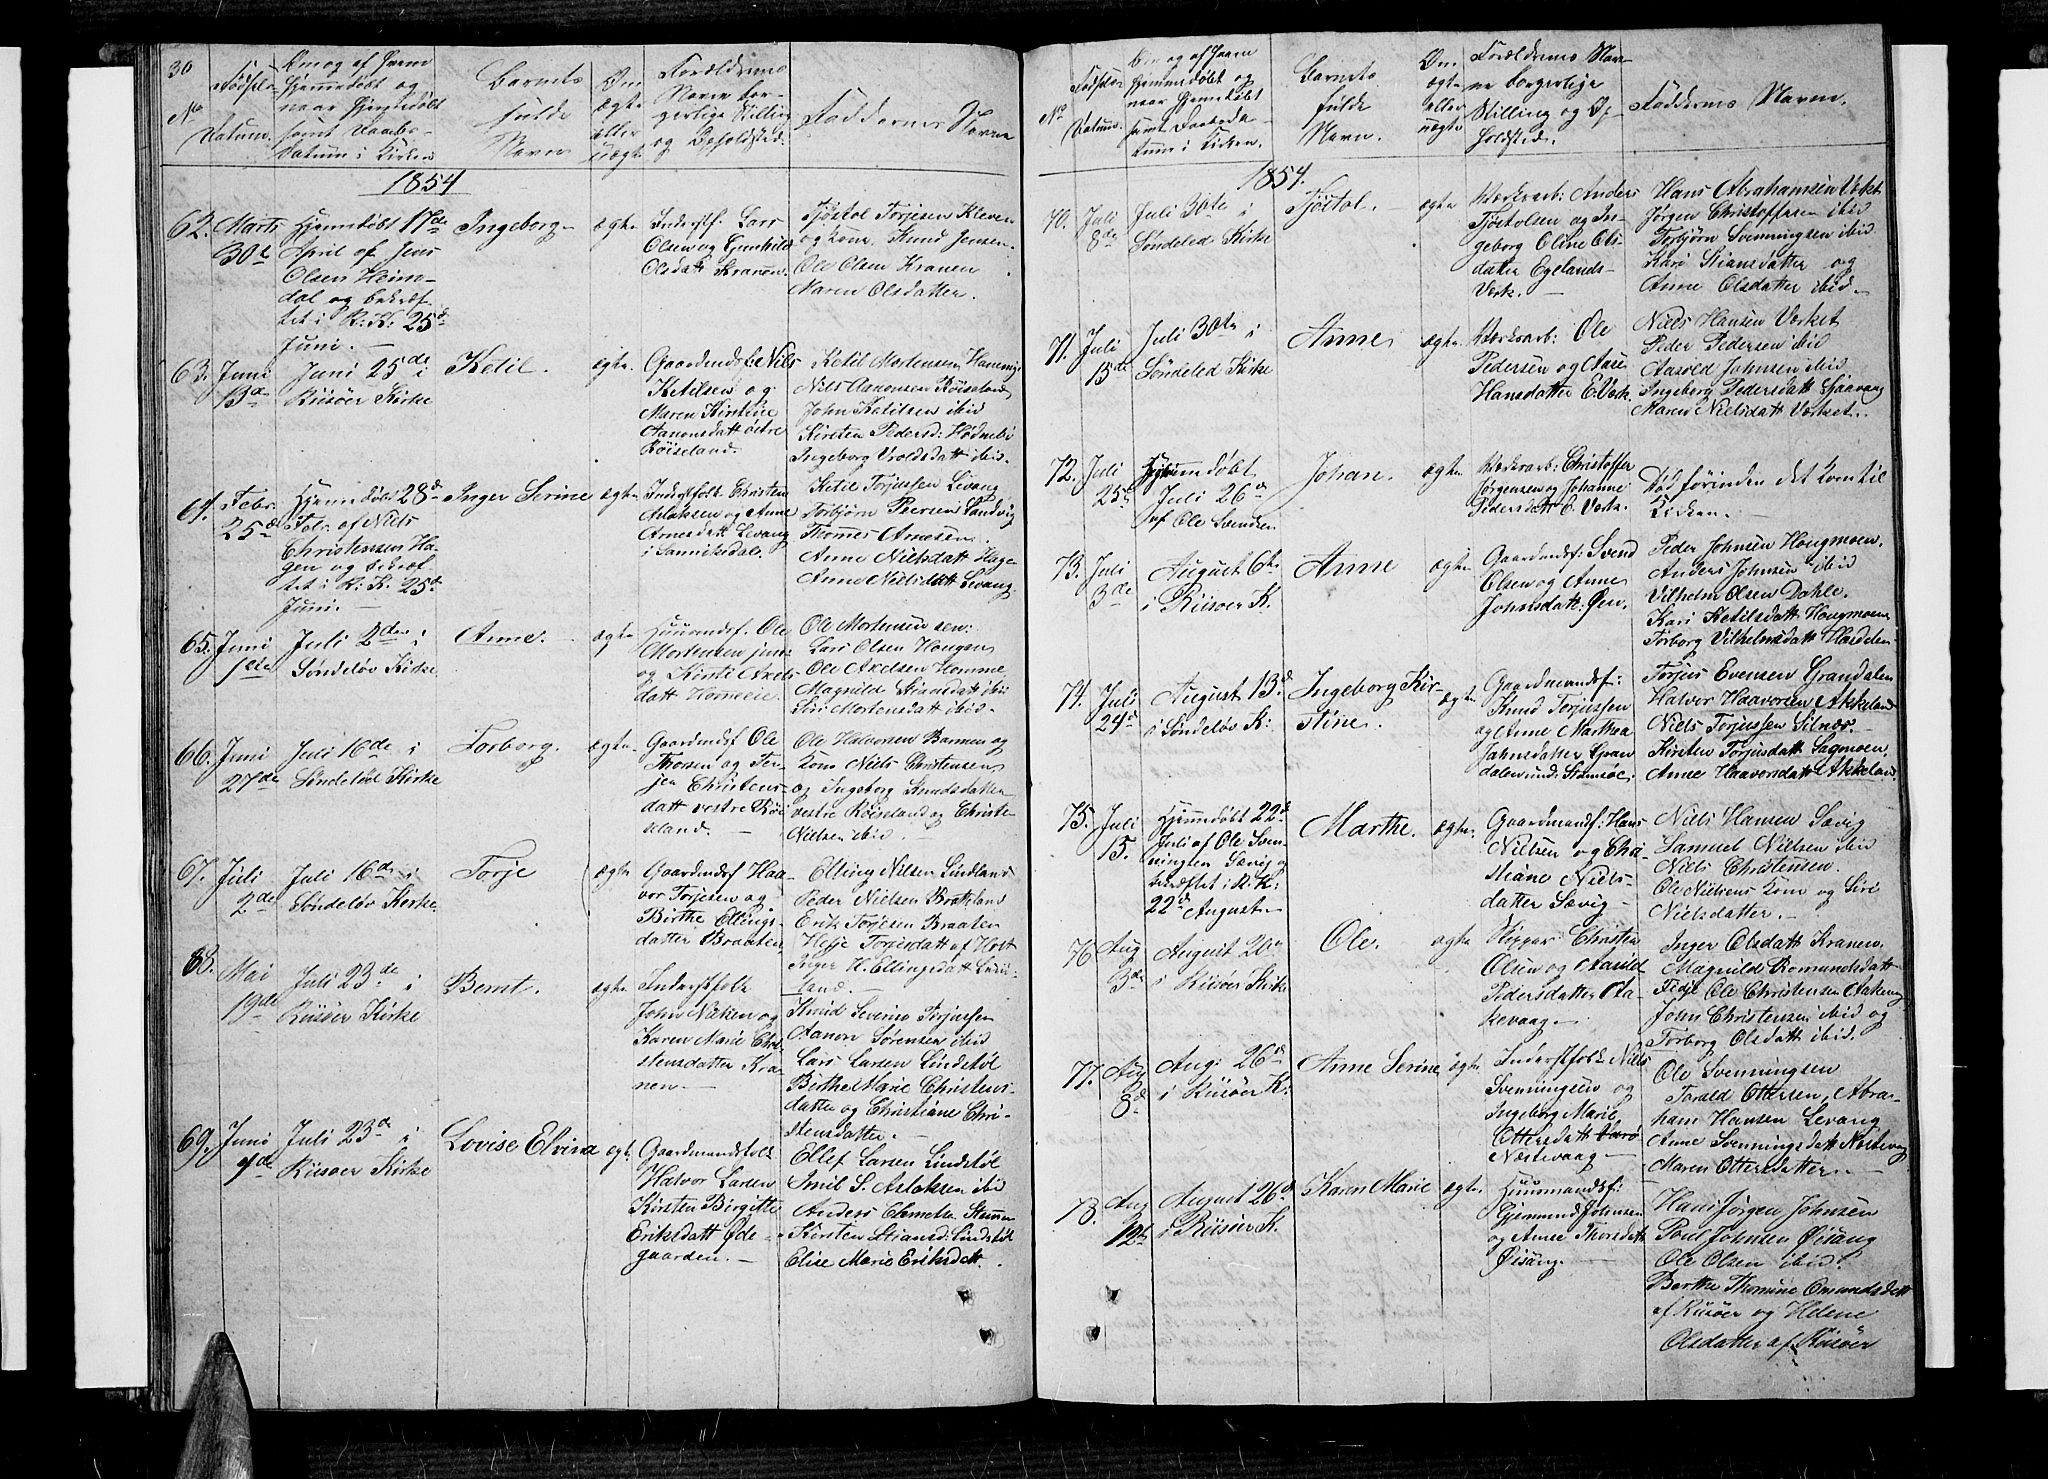 30
No
Fødsels
Datum.
Om og af hvem
Hjemmedøbt og
naar Hjemmedøbt
samt Daabs-
Datum i Kirken
Barnets
fulde
Navn
Om
ægte
eller
uægte
Forældrenes
Navne bor-
gerlige Stilling
og Opholdssted.
Faddernes Navne
1854
62. Marts
30te
Hjemmdøbt 17de
April af Jens
Olsen Heim-
dal og bekræf-
tet i R: K: 25de
Juni. —
Ingeborg
ægte
Inderstf. Lars
Olsen og Gunhild
Olsdatt Kranen.
Tjøstol Torjesen Kleven
og kone Knud Jensen.
Ole Olsen Kranen
Maren Olsdatter.
63. Juni
13de
Juni 25de i
Riisøer Kirke
Ketil.
ægte.
Gaardmdsf: Niels
Ketilsen og
Maren Kirstine
Aanonsdatt østre
Röiseland.
Ketil Mortensen
Niels Aanonsen Röiseland
John Ketilsen ibid
Kirsten Pedersd: Hødnebö
Ingeborg Vroldsdatt ibid.
64. Febr.
25de
Hjemmdøbt 28de
Febr. af Niels
Christensen Ha-
gen og bekræf-
tet i R. K. 25de
Juni. —
Inger Serine
ægte
Inderstfolk Christen
Aslaksen og Anne
Arnesdatt Levang
i Sannikedal.
Ketil Torjussen Levang
Torbjørn Peersen Sandvig
Thomes Arnesen.
Anne Nielsdatt Hage
Anne Nielsdatt Levang.
65. Juni
1ste
Juli 2den i
Søndeløv Kirke
Anne.
ægte
Huusmandsf. Ole
Mortensen jun:
og Kirsti Axels-
datt Hommeie.
Ole Mortensen sen:
Lars Olsen Hougen
Ole Axelsen Homme
Magnild Stiansdatt ibid
Siri Mortensdatt ibid.
66. Juni
27de
Juli 16de i
Søndeløv Kirke
Torborg.
ægte.
Gaardmdsf Ole
Thorsen og Ter-
jen Christens-
datt vestre Röi-
seland. —
Ole Halvorsen Barmen og
kone Niels Christensen
og Ingeborg Knudsdatter
vestre Röiseland og Christen
Nielsen ibid.
67. Juli
2de
Juli 16de i
Søndeløv Kirke.
Torje
ægte
Gaardmdsf Haa-
vor Torjesen og
Birthe Ellings-
datter Braaten.
Elling Nilsen Lindland
Peder Nielsen Brokland
Erik Torjesen Braaten
Helje Torjusdatt af Holt
Inger H. Ellingsdatt Lind-
land. —
68. Mai
19de
Juli 23de i
Riisøer Kirke
Bernt.
ægte
Inderstfolk
John Nilsen og
Karen Marie Chri-
stensdatter Kra-
nen. —
Knud Severin Torjussen
Aanon Sørensen ibid
Lars Larsen Lindstøl
Birthe Marie Christens-
datter og Christiane Chri-
stensdatter. —
69. Juni
4de
Juli 23de i
Riisøer Kirke
Lovise Elvina
ægte
Gaardmandsfolk
Halvor Larsen
Kirsten Birgitte
Eriksdatt Øde-
gaarden. —
Ellef Larsen Lindstøl
Emil S. Aslaksen ibid
Anders Clemetsen
Kirsten Stiansd: Lindstøl
Elise Marie Eriksdatt.
No
Fødsels
Datum.
Om og af hvem
Hjemmedøbt og
naar Hjemmedøbt
samt Daabsda-
tum i Kirken.
Barnets
fulde
Navn.
Om
ægte
eller
uægte
Forældrenes Nav-
ne borgerlige
Stilling og Op-
holdssted.
Faddernes Navne.
1854.
70. Juli
8de
Juli 30te i
Søndeled Kirke
Tjöstol.
ægte
Værksarb: Anders
Tjöstolsen og In-
geborg Oline Ols-
datter Egelands-
Verk. —
Hans Abrahamsen Verket
Jörgen Christoffersen ibid
Torbjørn Svenningsen ibid
Kari Stiansdatter og
Anne Olsdatter ibid. —
71. Juli
15de
Juli 30te i
Søndeled Kirke
Anne
ægte.
Værksarb: Ole
Pedersen og Aase
Hansdatter E. Værk.
Niels Hansen Værket
Peder Pedersen ibid
Aasold Johnsen ibid
Ingeborg Pedersdatt
Maren Nielsdatt Værket.
72. Juli
25de
Hjemmdøbt
Juli 26de
af Ole Svendsen
Johan.
ægte
Værksarb: Christoffer
Jørgensen og Johanne
Pedersdatt E. Værk.
Död förinden det kom til
Kirken. —
73. Juli
3de
August 6te
i Riisøer K.
Anne
ægte
Gaardmandsf: Svend
Olsen og Anne
Johnsdatt. Øen.
Peder Johnsen Hougmoen.
Anders Johnsen ibid
Vilhelm Olsen Dahle.
Kari Ketilsdatt Hougmoen
Torborg Vilhelmsdatt
74. Juli
24de
August 13de
i Søndeløv K:
Ingeborg Kir-
stine.
ægte
Gaardmandsf:
Knud Torjussen
og Anne Marthea
Jahnsdatter Gran-
dalen
Torjus Evensen Grandalen
Halvor Haavorsen Akkeland
Niels Torjussen Silnæs.
Kirsten Torjusdatt: Sagmoen
Anne Haavorsdatt Akkeland
75. Juli
15.
Hjemmdøbt 22de
Juli af Ole Sven-
ningsen Sævig og
bekræftet i R. K:
22de August. —
Marthe.
ægte.
Gaardmandsf: Hans
Nielsen og Chri-
stiane Niels-
datter Sævig —
Niels Hansen Sævig
Samuel Nielsen ibid
Niels Christensen.
Ole Nielsens kone og Siri
Nielsdatter. —
76 Aug
3de
August 20de
i Riisøer Kirke
Ole.
ægte
Skipper Christen
Olsen og Aasild
Pedersdatter Aa-
kevaag —
Inger Olsdatt Kranen.
Magnild Romundsdatt
Ole Christensen
John Christensen ibid og
Torborg Olsdatt ibid.
77. Aug
8de
Aug: 26de
i Riisøer K:
Anne Serine
ægte
Inderstfolk Niels
Svenningsen og
Ingeborg Marie
Ottersdatt
Næstevaag —
Ole Svenningsen
Tarald Ottersen, Abra-
ham Hansen Levang
Anne Svenningsdatt Næstevaag
Maren Ottersdatter —
78. Aug
12te
August 26de
i Riisöer K.
Karen Marie
ægte.
Huusmandsf:
Gjermund Johnsen
og Anne Thorsdatt
Øisang. —
Hans Jørgen Johnsen
Poul Johnsen Øisang
Ole Olsen ibid.
Berthe Thomine Omundsdatt
af Riisøer og Helene
Olsdatter af Riisøer